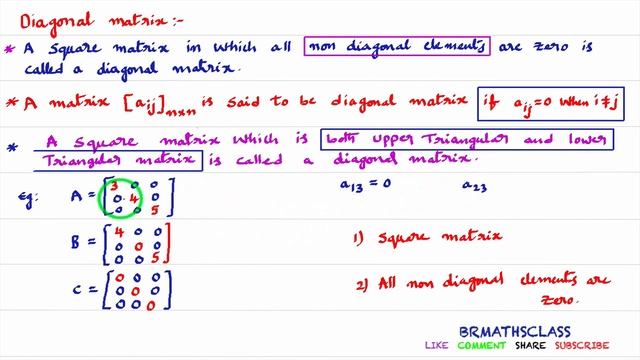 Diagonal matrix:-
* A square matrix in which all non diagonal elements are zero is
called a diagonal matrix.
* A matrix [aij]n×n is said to be diagonal matrix if aij=0 when i≠j
* A square matrix which is both upper Triangular and lower
Triangular matrix is called a diagonal matrix.
Eg: A = [3 0 0
0 4 0
0 0 5]
a13 = 0 a23
B = [4 0 0
0 0 0
0 0 5]
1) Square matrix
C = [0 0 0
0 0 0
0 0 0]
2) All non diagonal elements are
zero.
BRMATHSCLASS
LIKE COMMENT SHARE SUBSCRIBE